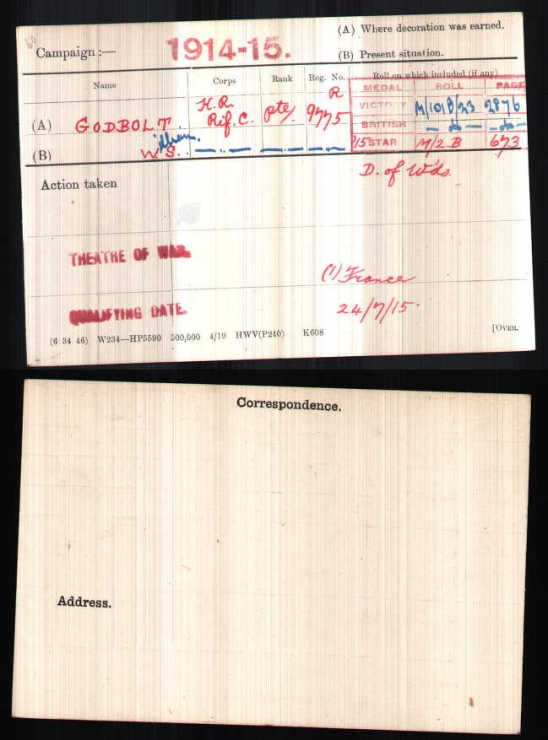 (A) Where decoration was earned.
Campaign :— 1914-15.
(B) Present situation.
Name Corps Rank Reg. No. Roll on which included (if any)
MEDAL ROLL PAGE
(A) GODBOLT K.R. Rif. C. Pte/ R 9775
VICTORY M/101B/23 2876
BRITISH — do — — do —
(B) W illiam S. — " — " — " —
15 STAR M/2 B 673
Action taken
D. of Wds.
THEATRE OF WAR.
(1) France
QUALIFYING DATE.
24/7/15.
(6 34 46) W234—HP5590 500,000 4/19 HWV(P240) K608
[OVER.
Correspondence.
Address.